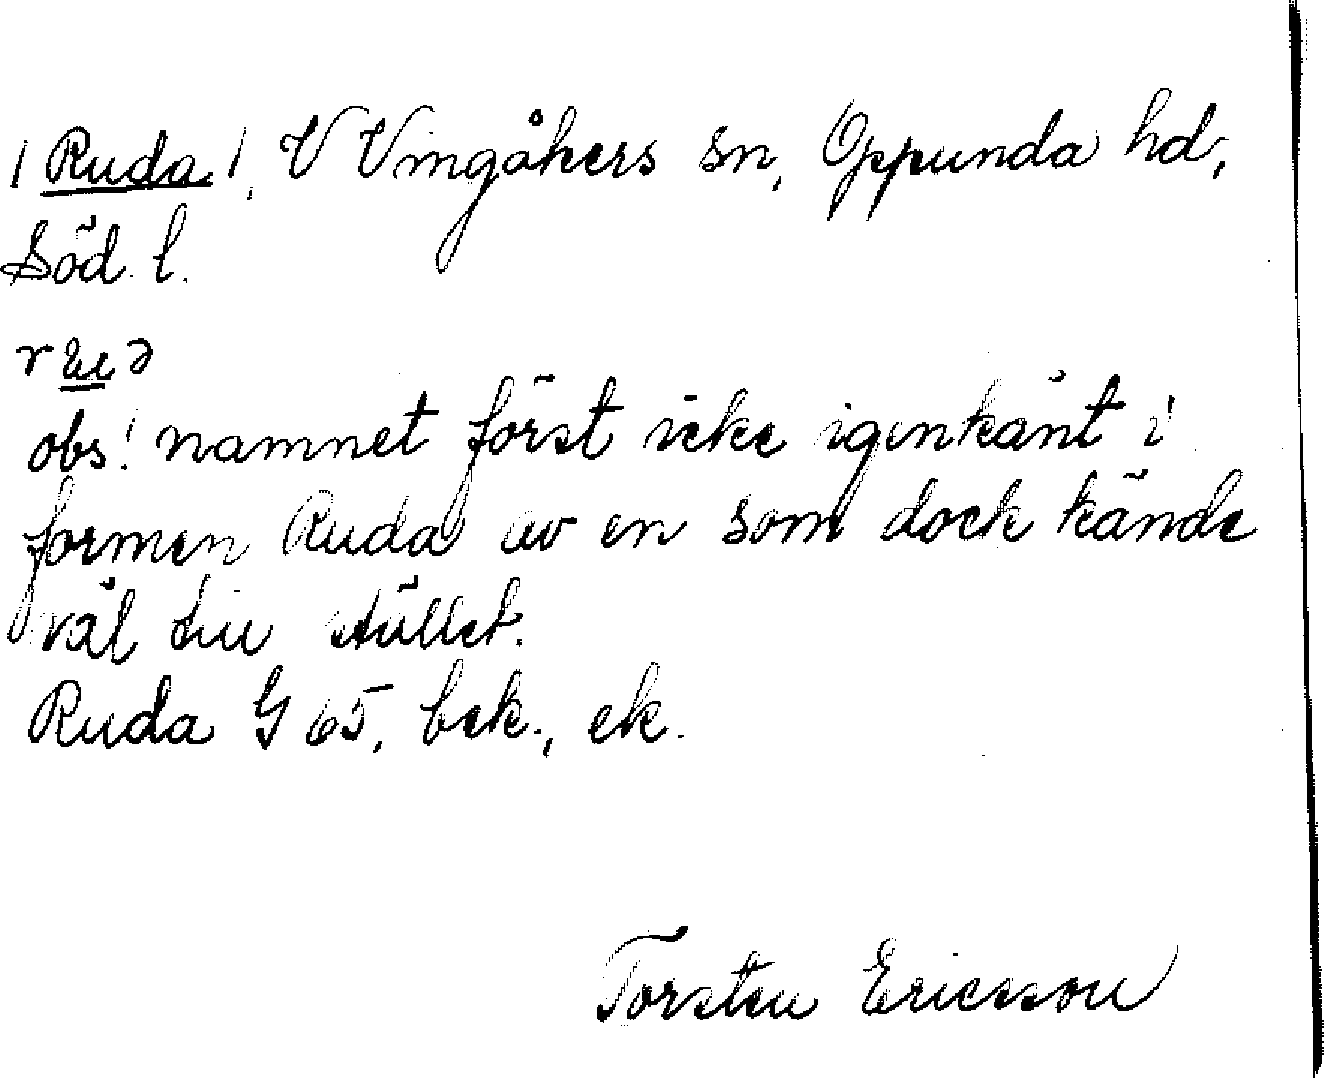 /Ruda/, V Vingåkers sn, Oppunda hd,
Söd. l.
obs! namnet först icke igenkänt i
formen Ruda av en som dock kände
väl till stället.
Ruda G 65, bek., ek.
Torsten Ericsson